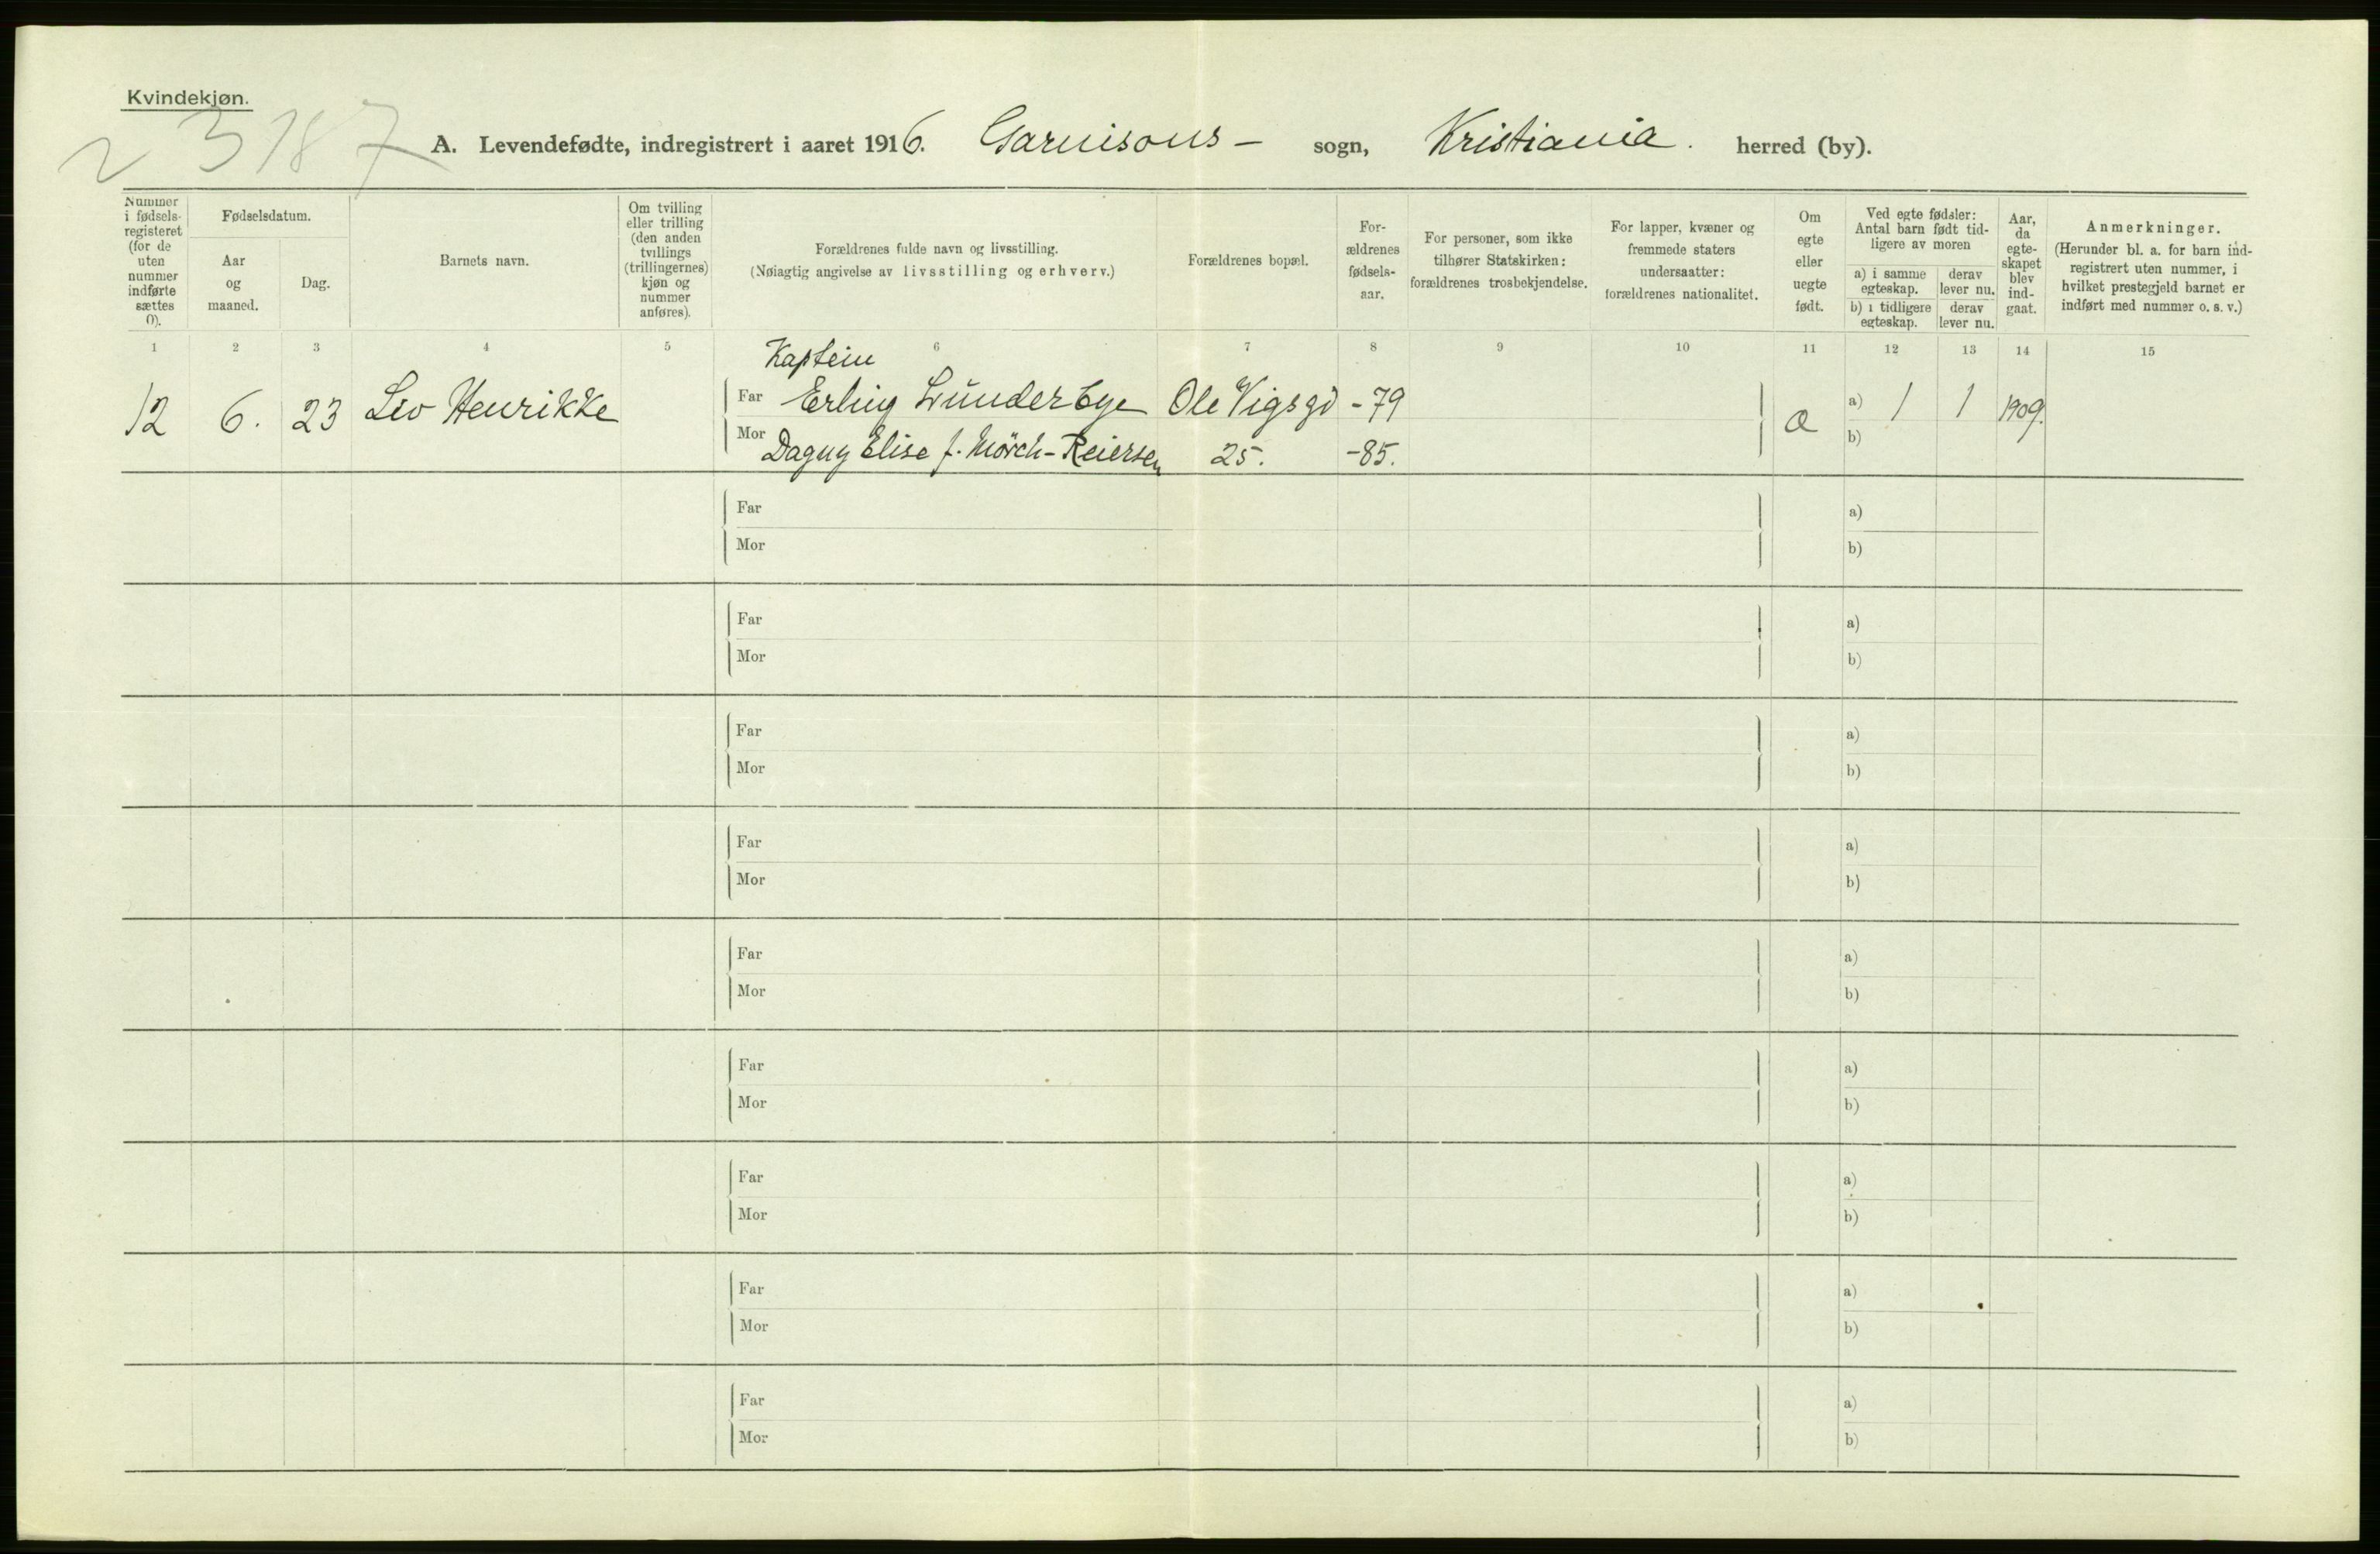 Kvindekjøn.
3187
A. Levendefødte, indregistrert i aaret 1916. Garnisons- sogn, Kristiania. herred (by).
Nummer i fødsels-registeret (for de uten nummer indførte sættes 0).
Fødselsdatum.
Aar og maaned.
Dag.
Barnets navn.
Om tvilling eller trilling (den anden tvillings (trillingernes) kjøn og nummer anføres).
Forældrenes fulde navn og livsstilling.
(Nøiagtig angivelse av livsstilling og erhverv.)
Forældrenes bopæl.
For-ældrenes fødsels-aar.
For personer, som ikke tilhører Statskirken: forældrenes trosbekjendelse.
For lapper, kvæner og fremmede staters undersaatter: forældrenes nationalitet.
Om egte eller uegte født.
Ved egte fødsler: Antal barn født tid-ligere av moren
a) i samme egteskap.
derav lever nu.
b) i tidligere egteskap.
derav lever nu.
Aar, da egte-skapet blev ind-gaat.
Anmerkninger.
(Herunder bl. a. for barn ind-registrert uten nummer, i hvilket prestegjeld barnet er indført med nummer o. s. v.)
1 2 3 4 5 6 7 8 9 10 11 12 13 14 15
Kaptein
12 6. 23 Liv Henrikke Far Erling Lunder bye Ole Vigsgd -79 a) 1 1 1909.
Mor Dagny Elise f. Mörch-Reiersen 25. -85. b)
Far a)
Mor b)
Far a)
Mor b)
Far a)
Mor b)
Far a)
Mor b)
Far a)
Mor b)
Far a)
Mor b)
Far a)
Mor b)
Far a)
Mor b)
Far a)
Mor b)